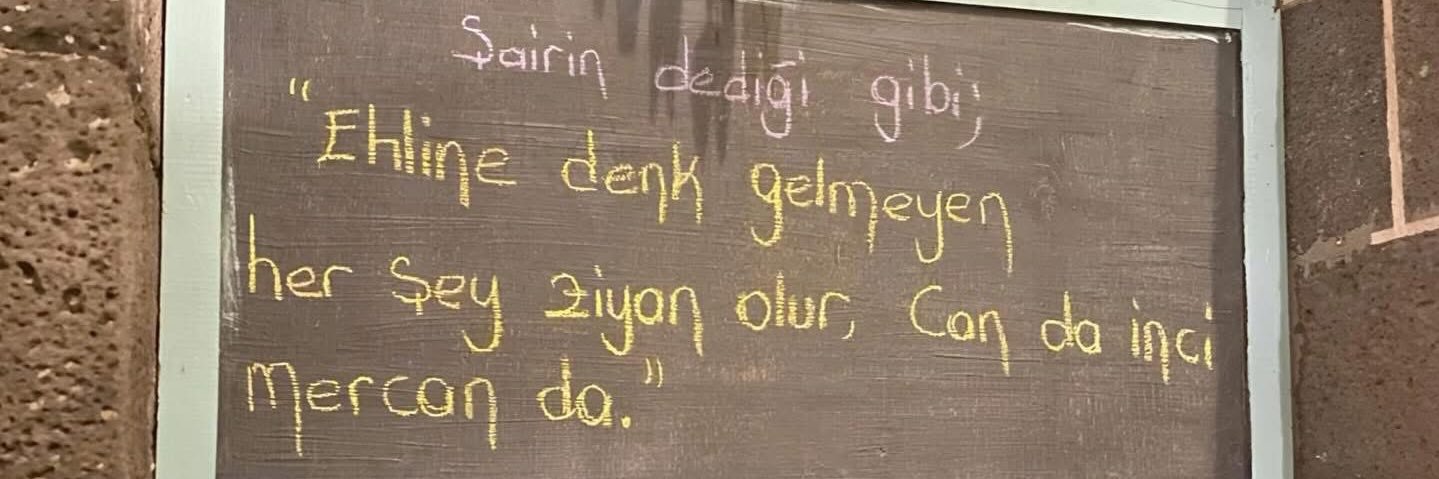 Şairin dediği gibi;
"Ehline denk gelmeyen
her şey ziyan olur, Can da inci
mercan da."